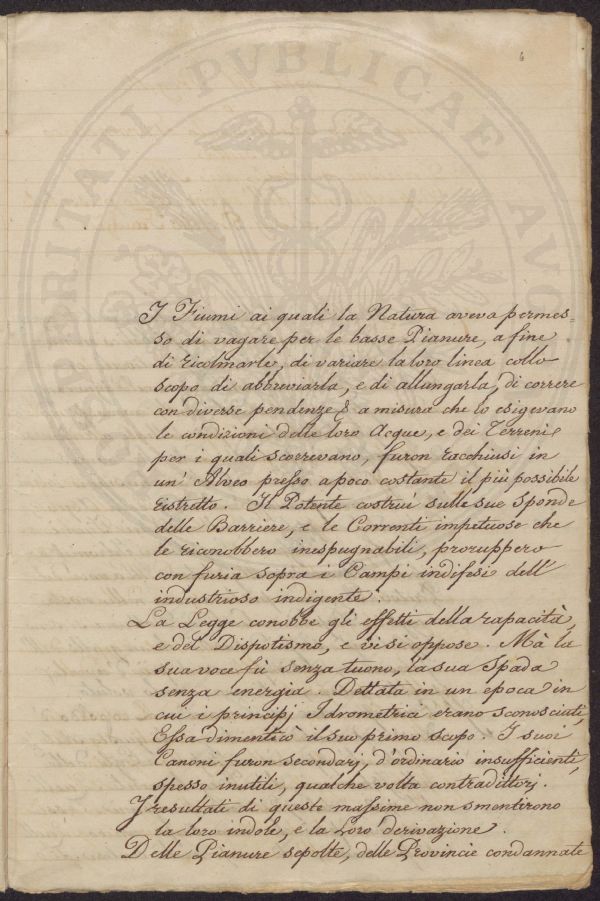 6
PROSPERITATI PVBLICAE AVGENDAE
I Fiumi ai quali la Natura aveva permes=
so di vagare per le basse Pianure, a fine
di ricolmarle, di variare la loro linea collo
scopo di abbreviarla, e di allungarla, di correre
con diverse pendenze, a misura che lo esigevano
le condizioni delle loro Acque, e dei Terreni
per i quali scorrevano, furon racchiusi in
un' Alveo presso a poco costante il più possibile
ristretto. Il Potente costruì sulle sue Sponde
delle Barriere, e le Correnti impetuose che
le riconobbero inespugnabili, proruppero
con furia sopra i Campi indifesi dell'
industrioso indigente.
La Legge conobbe gli effetti della rapacità,
e del Dispotismo, e vi si oppose. Mà la
sua voce fù senza tuono, la sua Spada
senza energia. Dettata in un epoca in
cui i principj Idrometrici erano sconosciuti,
Essa dimenticò il suo primo scopo. I suoi
Canoni furon secondarj, d'ordinario insufficienti,
spesso inutili, qualche volta contradittorj.
I resultati di queste massime non smentirono
la loro indole, e la Loro derivazione.
Delle Pianure sepolte, delle Provincie condannate